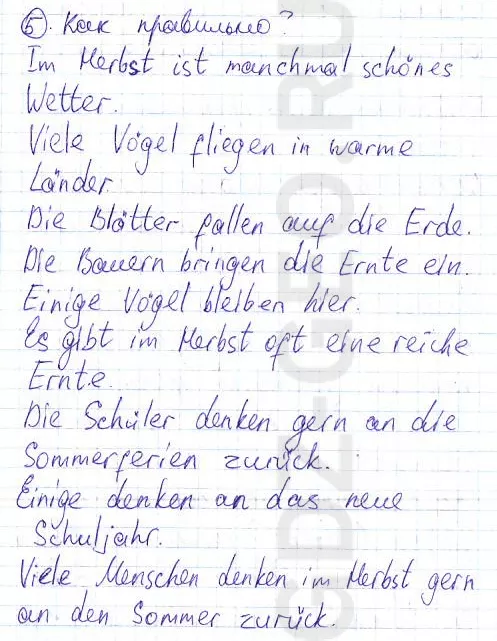 5. Как правильно?
Im Herbst ist manchmal schönes
Wetter.
Viele Vögel fliegen in warme
Länder.
Die Blätter fallen auf die Erde.
Die Bauern bringen die Ernte ein.
Einige Vögel bleiben hier.
Es gibt im Herbst oft eine reiche
Ernte.
Die Schüler denken gern an die
Sommerferien zurück.
Einige denken an das neue
Schuljahr.
Viele Menschen denken im Herbst gern
an den Sommer zurück.
GDZ-GEO.RU